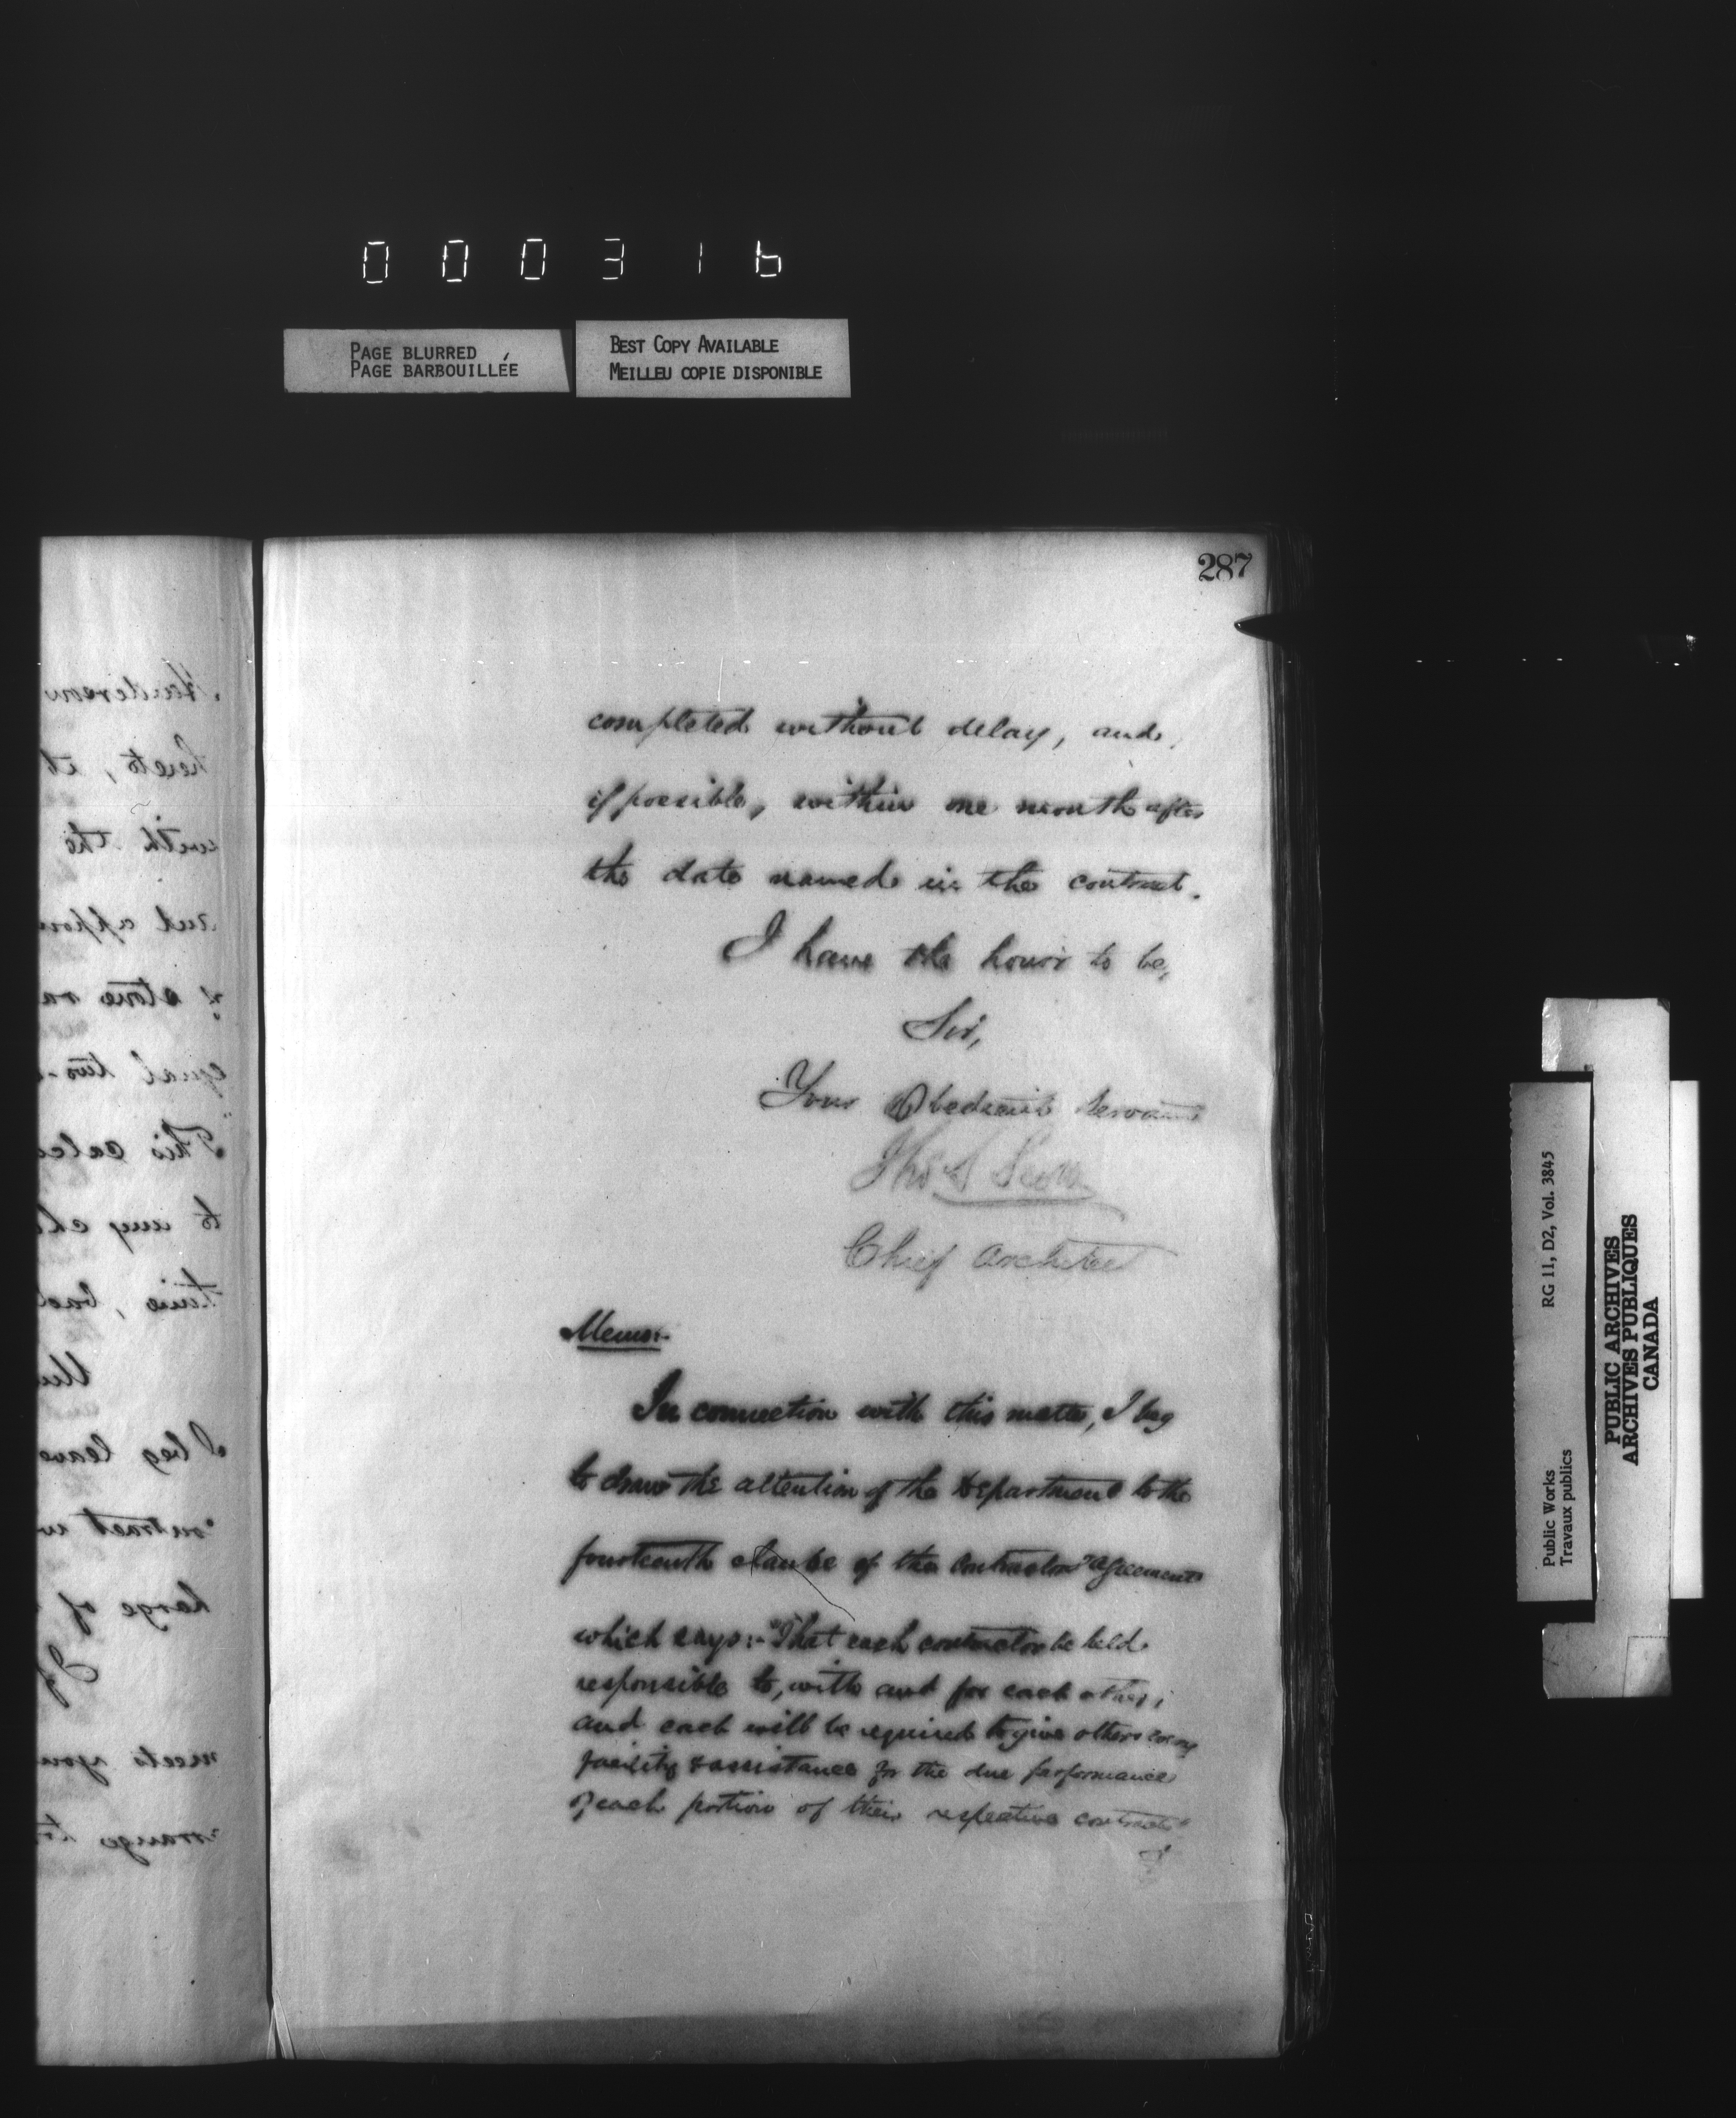 000316
PAGE BLURRED
PAGE BARBOUILLÉE
BEST COPY AVAILABLE
MEILLEU COPIE DISPONIBLE
287
completed without delay, and,
if possible, within one month after
the date named in the contract.
I have the honor to be,
Sir,
Your Obedient Servant
Thos S Scott
Chief Architect
Memo:-
In connection with this matter, I beg
to draw the attention of the Department to the
fourteenth clause of the Contractors' agreements
which says:- "That each contractor be held
responsible to, with and for each other;
and each will be required to give others every
facility & assistance for the due performance
of each portion of their respective contracts"
Henderson
hereto, it
with the
and
stone
equal two-
This
to my
time,
I beg leave
contract
of
If
meets your
Public Works
Travaux publics
RG 11, D2, Vol. 3845
PUBLIC ARCHIVES
ARCHIVES PUBLIQUES
CANADA